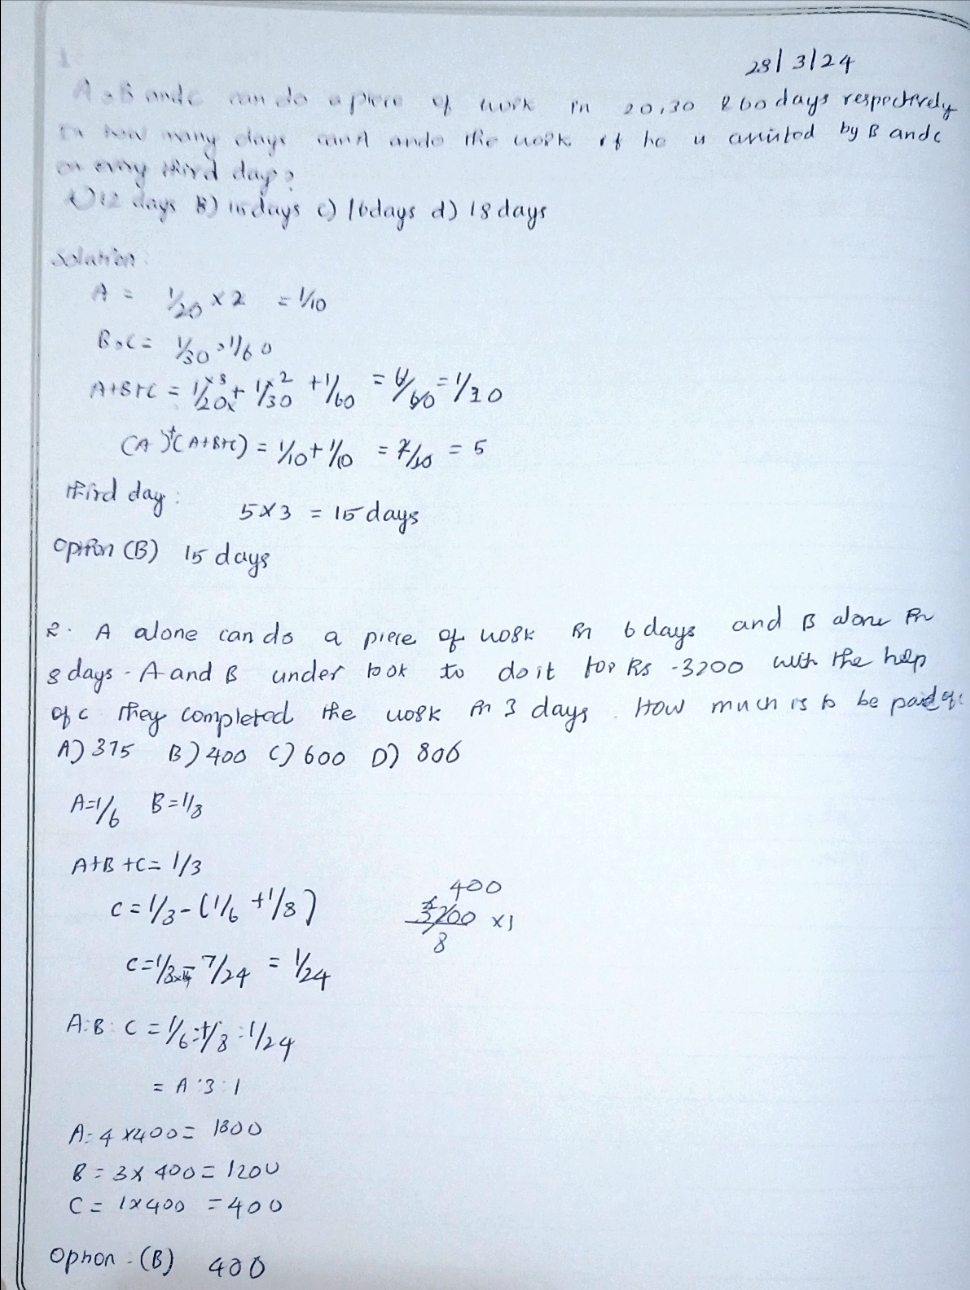 1.
28/3/24
A, B and c can do a piece of work in 20,30 & 60 days respectively
In how many days can A and do the work if he is assisted by B and c
on every third day?
A) 12 days B) 15 days c) 16 days d) 18 days
Solution:
A = 1/20 × 2 = 1/10
B, C = 1/30, 1/60
A+B+C = 1/20 ×3 + 1/30 ×2 + 1/60 = 6/60 = 1/10
(A)+(A+B+C) = 1/10 + 1/10 = 2/10 = 5
third day: 5×3 = 15 days
Option (B) 15 days
2. A alone can do a piece of work in 6 days and B alone in
8 days - A and B under took to do it for Rs -3200 with the help
of c they completed the work in 3 days. How much is to be paid
A) 375 B) 400 C) 600 D) 806
A=1/6 B=1/8
A+B+C= 1/3
C = 1/3 - (1/6 + 1/8)
400
3200 ×1
8
C = 1/3 - 7/24 = 1/24
A:B:C = 1/6 : 1/8 : 1/24
= A:3:1
A = 4×400 = 1800
B = 3×400 = 1200
C = 1×400 = 400
Option - (B) 400